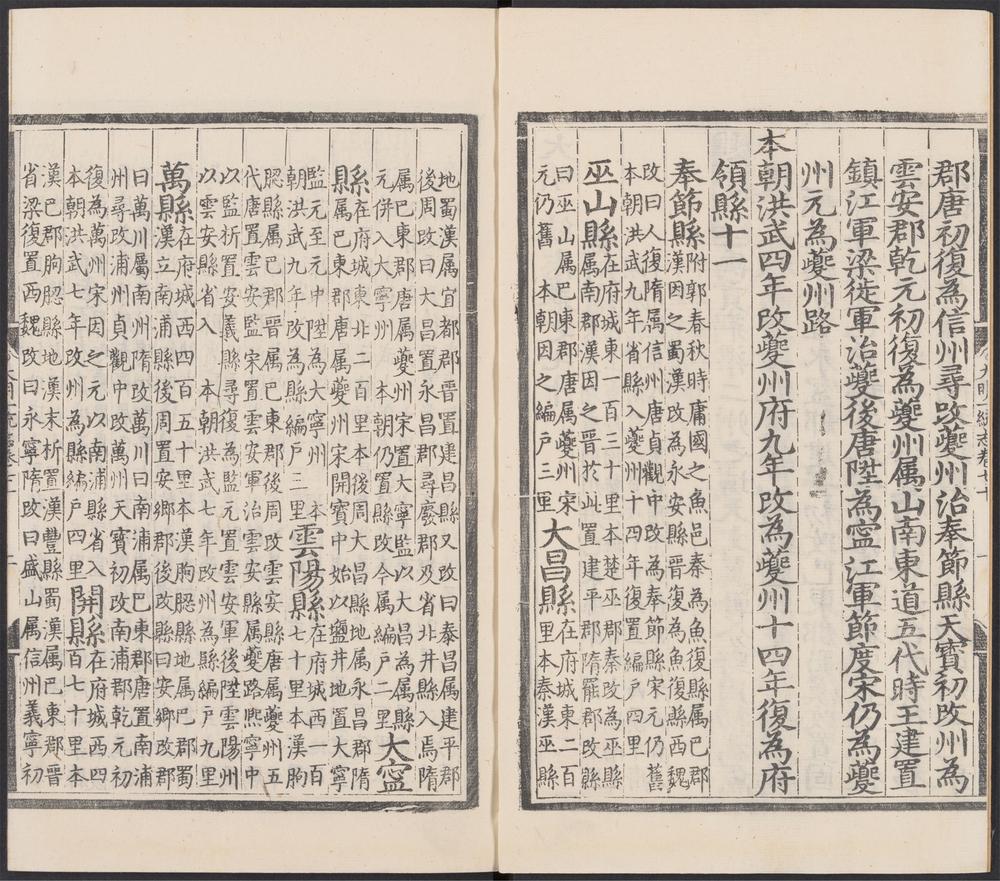 郡唐初復為信州尋改夔州治奉節縣天寶初改州為
雲安郡乾元初復為夔州属山南東道五代時王建置
鎮江軍梁徙軍治夔後唐陞為寧江軍節度宋仍為夔
州元為夔州路
本朝洪武四年改夔州府九年改為夔州十四年復為府
領縣十一
奉節縣附郭春秋時庸國之魚邑秦為魚復縣属巴郡
漢因之蜀漢改為永安縣晉復為魚復縣西魏
改曰人復隋属信州唐貞觀中改為奉節縣宋元仍舊
本朝洪武九年省縣入夔州十四年復置編户四里
巫山縣在府城東一百三十里本楚巫郡秦改為巫縣
属南郡漢因之晉於此置建平郡隋罷郡改縣
曰巫山属巴東郡唐属夔州宋
元仍舊 本朝因之編户三里
大昌縣在府城東二百
里本秦漢巫縣
地蜀漢属宜都郡晉置建昌縣又改曰泰昌属建平郡
後周改曰大昌置永昌郡尋廢郡及省北井縣入焉隋
属巴東郡唐属夔州宋置大寧監以大昌為属縣
元併入大寧州 本朝仍置縣改今属編户二里
大寧
縣在府城東北二百里本後周大昌縣地属永昌郡隋
属巴東郡唐属夔州宋開寶中始以鹽井地置大寧
監元至元中陞為大寧州 本
朝洪武九年改為縣編户三里
雲陽縣在府城西一百
七十里本漢朐
䏰縣属巴郡晉属巴東郡後周改雲安縣属夔州五
代唐属雲安監宋置雲安軍治雲安縣属夔路熙寧中
以監析置安義縣尋復為監元置雲安軍後陞雲陽州
以雲安縣省入 本朝洪武七年改州為縣編户九里
萬縣在府城西四百五十里本漢朐䏰縣地属巴郡蜀
漢立南浦縣後周置安鄉郡後改縣曰安鄉郡
曰萬川屬南州隋改萬川曰南浦属巴東郡唐置南浦
州尋改浦州貞觀中改萬州天寶初改南浦郡乾元初
復為萬州宋因之元以南浦縣省入
本朝洪武七年改州為縣編户四里
開縣在府城西四
百七十里本
漢巴郡朐䏰縣地漢末析置漢豐縣蜀漢属巴東郡晉
省梁復置西魏改曰永寧隋改曰盛山属信州義寧初